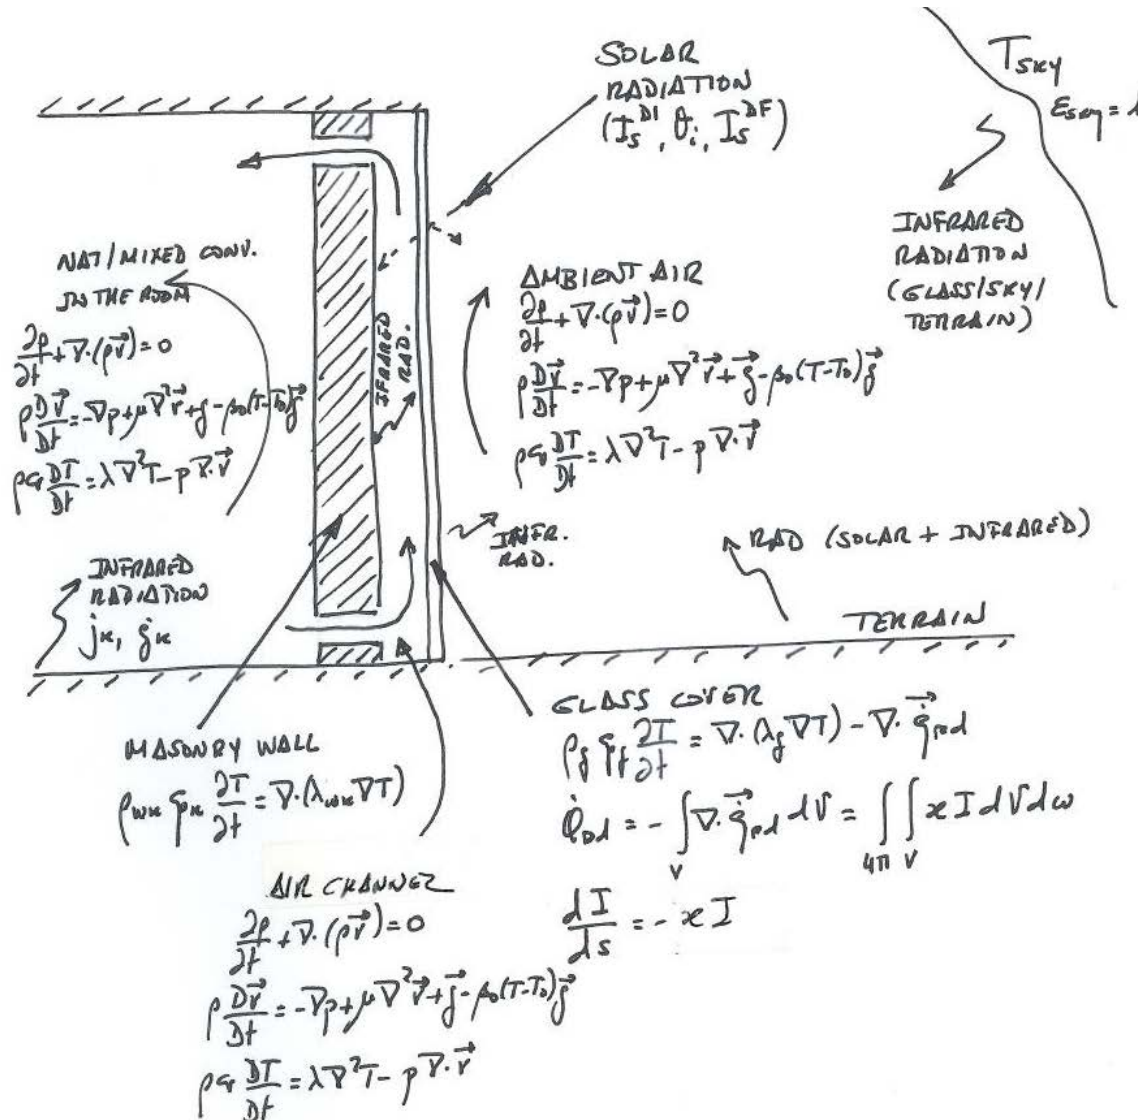 SOLAR
RADIATION
(I_s^DI, θ_i, I_s^DF)
T_SKY
ε_sky = 1
INFRARED
RADIATION
(GLASS/SKY/
TERRAIN)
NAT/MIXED CONV.
IN THE ROOM
∂ρ/∂t + ∇·(ρv⃗) = 0
ρ Dv⃗/Dt = -∇p + μ∇²v⃗ + g - β₀(T-T₀)g⃗
ρc_v DT/Dt = λ∇²T - p∇·v⃗
IFRARED
RAD.
AMBIENT AIR
∂ρ/∂t + ∇·(ρv⃗) = 0
ρ Dv⃗/Dt = -∇p + μ∇²v⃗ + g⃗ - β₀(T-T₀)g⃗
ρc_v DT/Dt = λ∇²T - p∇·v⃗
INFR.
RAD.
RAD (SOLAR + INFRARED)
TERRAIN
INFRARED
RADIATION
j_k, g_k
MASONRY WALL
ρ_wk c_pk ∂T/∂t = ∇·(λ_wk ∇T)
GLASS COVER
ρ_g c_g ∂T/∂t = ∇·(λ_g ∇T) - ∇·q⃗_rad
Q̇_rad = -∫_V ∇·q⃗_rad dV = ∫_4π ∫_V κ I dV dω
dI/ds = -κ I
AIR CHANNEL
∂ρ/∂t + ∇·(ρv⃗) = 0
ρ Dv⃗/Dt = -∇p + μ∇²v⃗ + g⃗ - β₀(T-T₀)g⃗
ρc_v DT/Dt = λ∇²T - p∇·v⃗